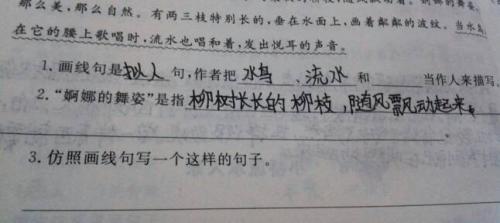 那么美,那么自然。有两三枝特别长的,垂在水面上,画着粼粼的波纹。当水鸟
在它的腰上歌唱时,流水也唱和着,发出悦耳的声音。
1. 画线句是拟人句,作者把 水鸟 、 流水 和 ____ 当作人来描写。
2. “婀娜的舞姿”是指 柳树长长的柳枝,随风飘动起来。
3. 仿照画线句写一个这样的句子。